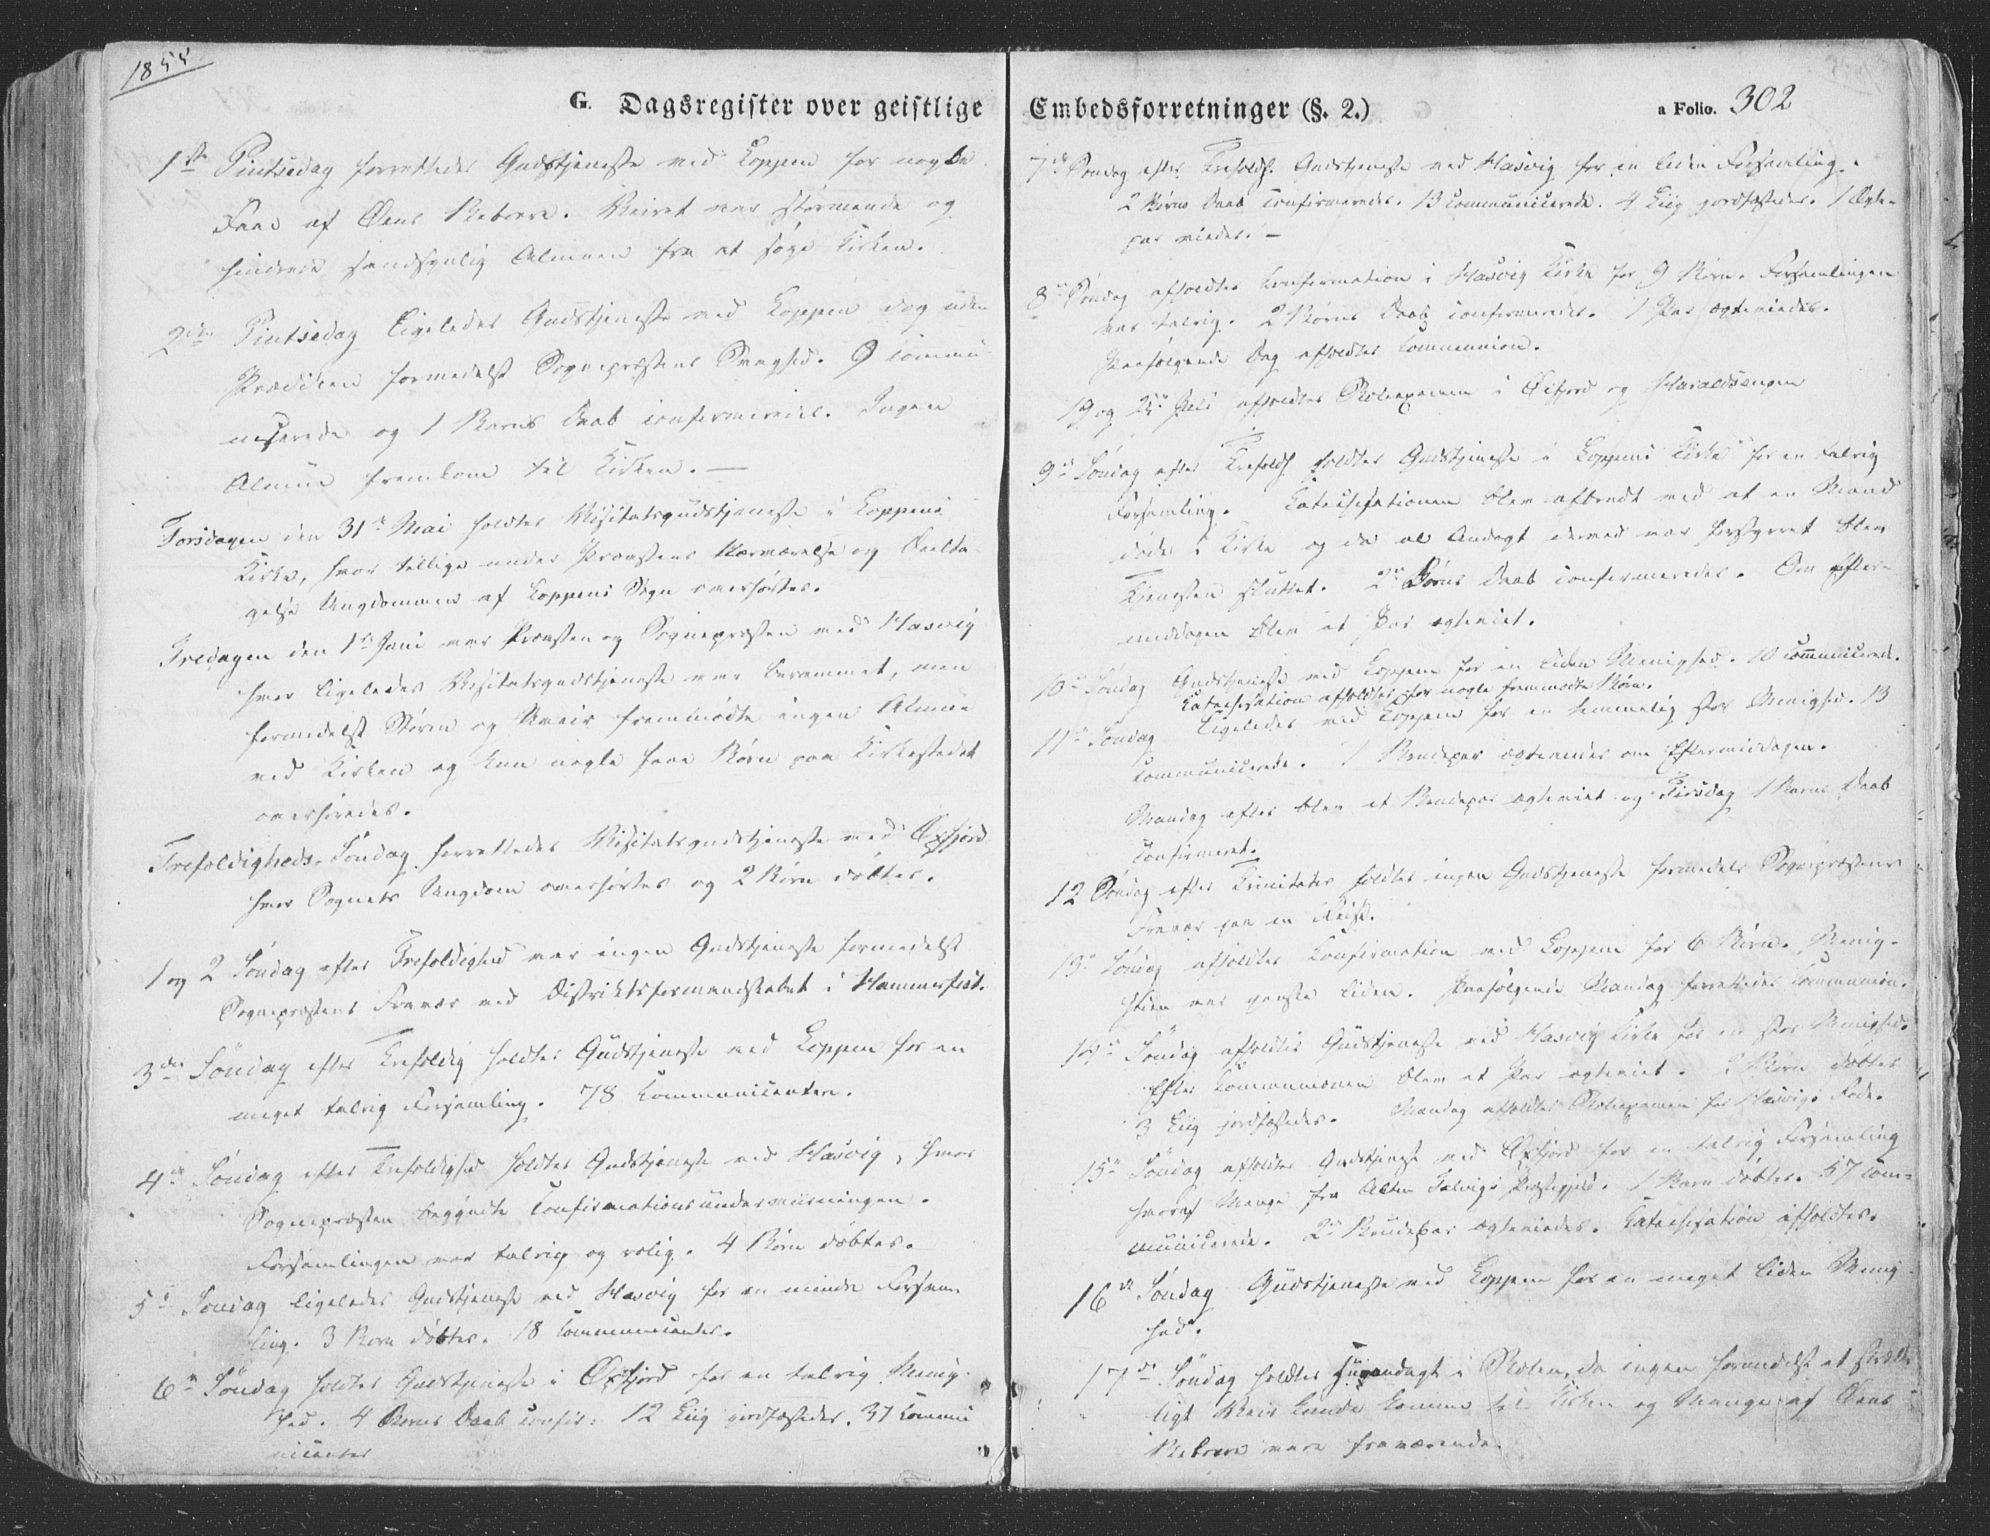 1855
G. Dagsregister over geistlige
1ste Pintsedag forrettedes Gudstjeneste ved Loppen for nogle
Faae af Øens Beboere. Veiret var stormende og
hindrede sandsynlig Almuen fra at søge Kirken.
2den Pintsedag ligeledes Gudstjeneste ved Loppen dog uden
Prædiken formedelst Sognepræstens Svaghed. 9 commu-
nicerede og 1 Barns Daab confirmeredes. Ingen
Almue fremkom til Kirken. —
Torsdagen den 31te Mai holdtes Visitatsgudstjeneste i Loppens
Kirke, hvor tillige under Provstens Nærværelse og Delta-
gelse Ungdommen af Loppens Sogn overhørtes.
Fredagen den 1ste Juni var Provsten og Sognepræsten ved Hasvig
hvor ligeledes Visitatsgudstjeneste var berammet, men
formedelst Storm og Uveir fremmødte ingen Almue
ved Kirken og kun nogle faae Børn paa Kirkestedet
overhøredes.
Trefoldigheds-Søndag forrettedes Visitatsgudstjeneste ved Øxfjord
hvor Sognets Ungdom overhørtes og 2 Børn døbtes.
1 og 2 Søndag efter Trefoldighed var ingen Gudstjeneste formedelst
Sognepræstens Fravær ved Distriktsformandskabet i Hammerfest.
3die Søndag efter Trefoldig holdtes Gudstjeneste ved Loppen for en
meget talrig Forsamling. 78 Kommunicantere.
4de Søndag efter Trefoldighed holdtes Gudstjeneste ved Hasvig, hvor
Sognepræsten begyndte Confirmationsundervisningen.
Forsamlingen var talrig og rolig. 4 Børn døbtes.
5te Søndag ligeledes Gudstjeneste ved Hasvig for en mindre Forsam-
ling. 3 Børn døbtes. 18 Communicanter.
6te Søndag holdtes Gudstjeneste i Øxfjord for en talrig Menig-
hed. 4 Børns Daab confir: 12 Liig jordfæstedes. 37 Commu
nicanter
Embedsforretninger (§. 2.)
a Folio. 302
7de Søndag efter Trefoldh. Gudstjeneste ved Hasvig for en liden Forsamling.
2 Børns Daab confirmeredes. 13 communicerede. 4 Liig jordfæstedes. 1 Ægte-
par viedes. —
8de Søndag afholdtes Confirmation i Hasvig Kirke for 9 Børn. Forsamlingen
var talrig. 2 Børns Daab confirmeredes. 1 Par ægteviedes.
Paafølgende Dag afholdtes Communion.
19 og Juli afholdtes Skoleexamen i Øxfjord og
9de Søndag efter Trefoldh holdtes Gudstjeneste i Loppens Kirke for en talrig
Forsamling. Katechisationen blev afbrudt ved at en Mand
døde i Kirke og da al Andagt derved var forstyrret blev
Tjenesten sluttet. 2de Børns Daab confirmeredes. Om Efter-
middagen blev et Par ægteviet.
10de Søndag Gudstjeneste ved Loppen for en liden Menighed. 10 Communicerede.
Katechisation afholdtes for nogle fremmødte Børn.
11te Søndag ligeledes ved Loppen for en temmelig stor Menighed. 13
Communicerede. 1 Brudepar ægteviedes om Eftermiddagen.
Mandag efter blev et Brudepar ægteviet og Tirsdag 1 Barns Daab
confirmeret.
12 Søndag efter Trinitatis holdtes ingen Gudstjeneste formedels Sognepræstens
Fravær paa en Reise.
13de Søndag afholdtes Confirmation ved Loppen for 6 Børn. Menig-
heden var ganske liden. Paafølgende Mandag forrettedes Communion.
14de Søndag afholdtes Gudstjeneste ved Hasvig Kirke for en stor Menighed.
Efter Communionen blev et Par ægteviet. 2 Børn døbtes
3 Liig jordfæstedes. Mandag afholdtes Skoleexamen for Hasvigs Rode.
15de Søndag afholdtes Gudstjeneste ved Øxfjord for en talrig Forsamling
hvoraf Mange fra Alten Talvigs Præstegjeld. 1 Barn døbtes. 57 com-
municerede. 2de Brudepar ægteviedes. Katechisation afholdtes.
16de Søndag Gudstjeneste ved Loppen for en meget liden Menig-
hed.
17de Søndag holdtes Huusandagt i Skolen, da ingen formedelst et
ligt Veir kunde komme til Kirken og Mange af Øens
Beboere vare fraværende.